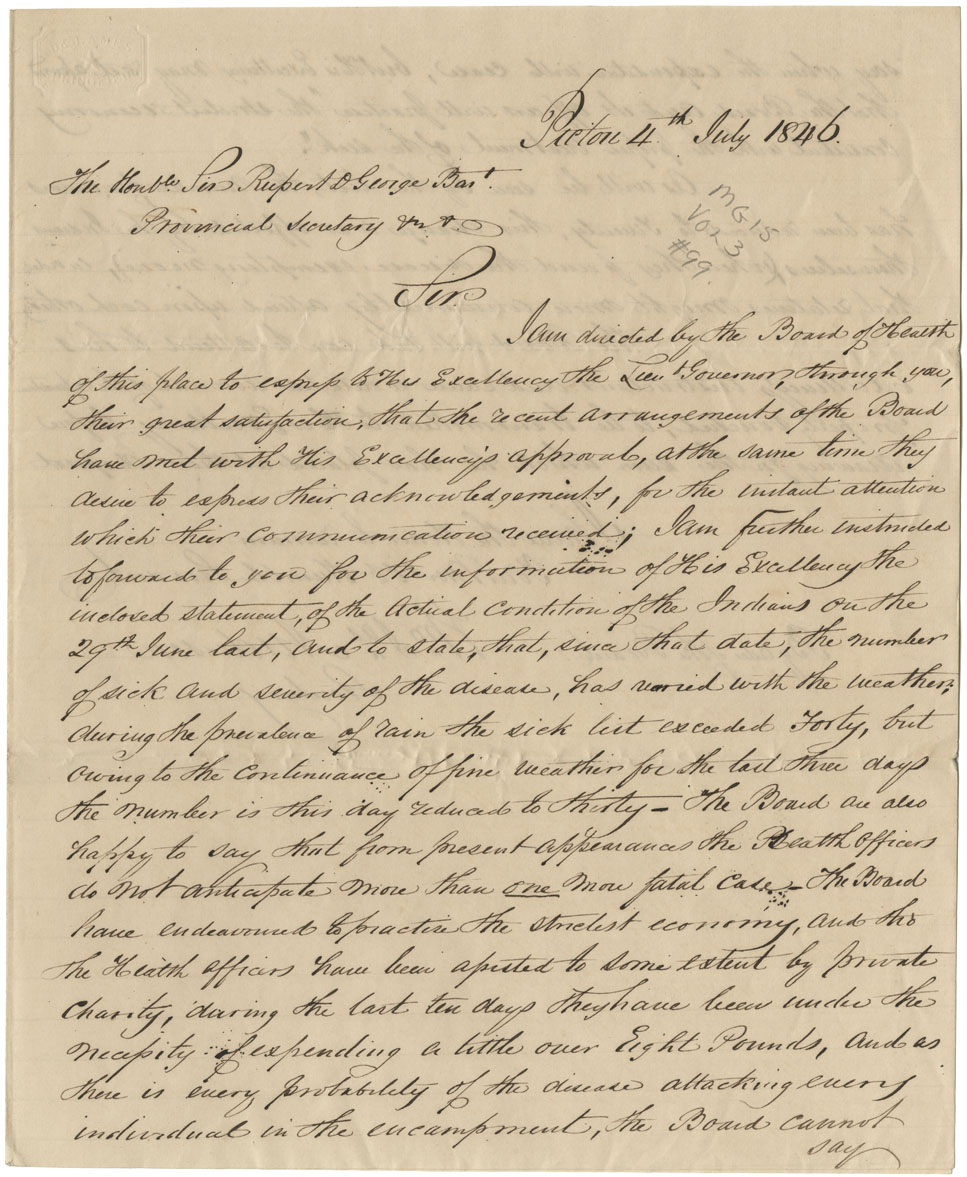 Picton 4th July 1846.
The Honble Sir Rupert D George Bart.
Provincial Secretary &c &c
MG 15
Vol 3
#99
Sir
I am directed by the Board of Health
of this place to express to His Excellency the Lieut Governor, through you,
their great satisfaction, that the recent arrangements of the Board
have met with His Excellency's approval, at the same time they
desire to express their acknowledgements, for the instant attention
which their communication received; I am further instructed
to forward to you for the information of His Excellency the
inclosed statement, of the actual condition of the Indians on the
29th June last, and to state, that, since that date, the number
of sick and severity of the disease, has varied with the weather;
during the prevalence of rain the sick list exceeded Forty, but
owing to the continuance of fine weather for the last three days
the number is this day reduced to thirty – The Board are also
happy to say that from present appearances the Health Officers
do not anticipate more than one more fatal case – The Board
have endeavoured to practise the strictest economy, and tho
the Health officers have been assisted to some extent by private
Charity, during the last ten days they have been under the
necessity of expending a little over Eight Pounds, and as
there is every probability of the disease attacking every
individual in the encampment, the Board cannot
say